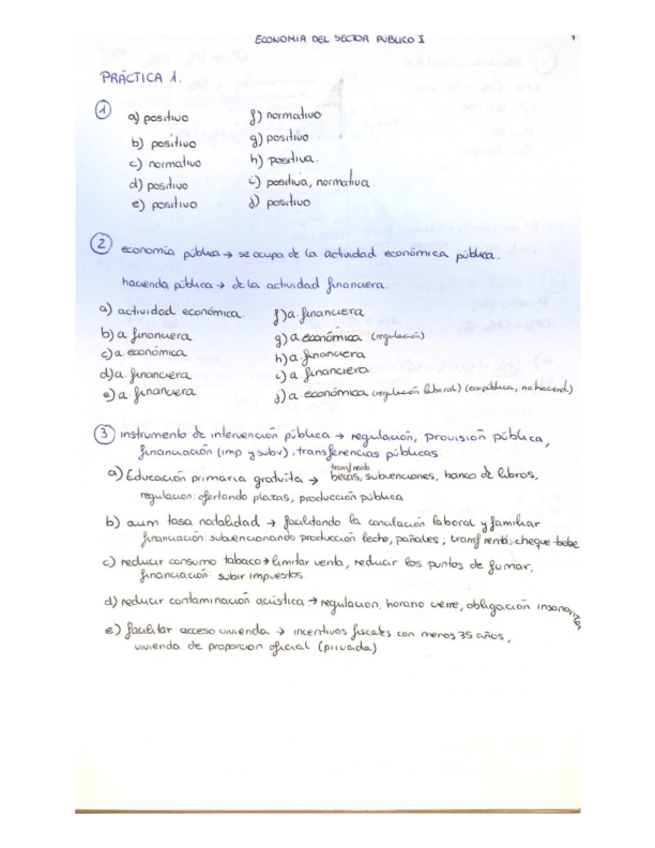 ECONOMIA DEL SECTOR PUBLICO I
1
PRÁCTICA 1.
①
a) positivo
b) positivo
c) normativo
d) positivo
e) positivo
f) normativo
g) positivo
h) positiva.
i) positiva, normativa.
j) positivo
② economía pública → se ocupa de la actividad económica pública.
hacienda pública → de la actividad financiera.
a) actividad económica.
b) a financiera
c) a. económica
d) a. financiera
e) a. financiera
f) a. financiera
g) a económica (regulación)
h) a. financiera
i) a. financiera
j) a. económica (regulación laboral) (eco pública, no hacend)
③ instrumento de intervención pública → regulación, provisión pública,
financiación (imp y subv), transferencias públicas.
a) Educación primaria gratuita → becas, subvenciones, banco de libros,
regulacion: ofertando plazas, producción pública
b) aum tasa natalidad → facilitando la conciliación laboral y familiar
financiación: subvencionando producción leche, pañales; transf renta, cheque-bebe
c) reducir consumo tabaco → limitar venta, reducir los puntos de fumar,
financiación: subir impuestos.
d) reducir contaminación acústica → regulacion, horario cierre, obligación
e) facilitar acceso vivienda → incentivos fiscales con menos 35 años,
vivienda de proporcion oficial (privada)